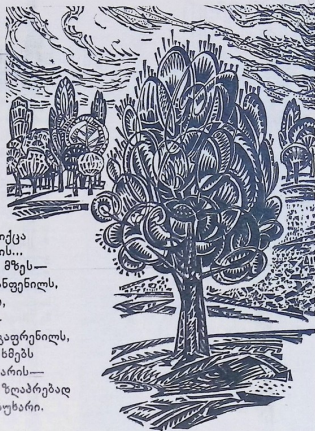 იქცა
ის...
მზეს—
ანფენილს,
გაფრენილს,
ხმებს
არის—
ზღაპრებად
უხარი.